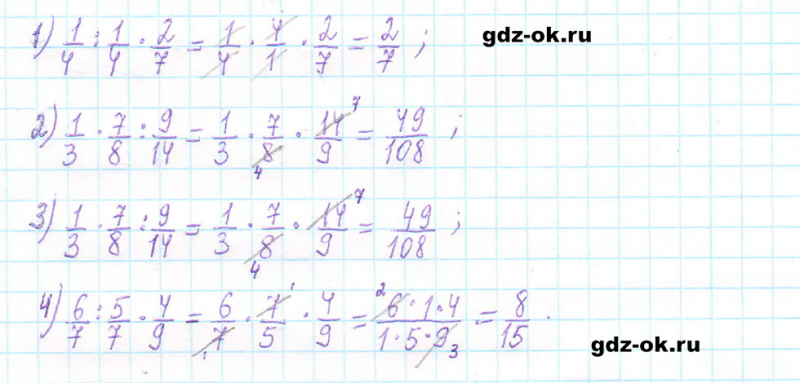 1) 1/4 : 1/4 · 2/7 = 1/4 · 4/1 · 2/7 = 2/7 ; gdz-ok.ru
2) 1/3 · 7/8 : 9/14 = 1/3 · 7/8 4 · 14 7/9 = 49/108 ;
3) 1/3 · 7/8 : 9/14 = 1/3 · 7/8 4 · 14 7/9 = 49/108 ;
4) 6/7 : 5/7 · 4/9 = 6/7 1 · 7 1/5 · 4/9 = 2 6·1·4/1·5·9 3 = 8/15 .
gdz-ok.ru